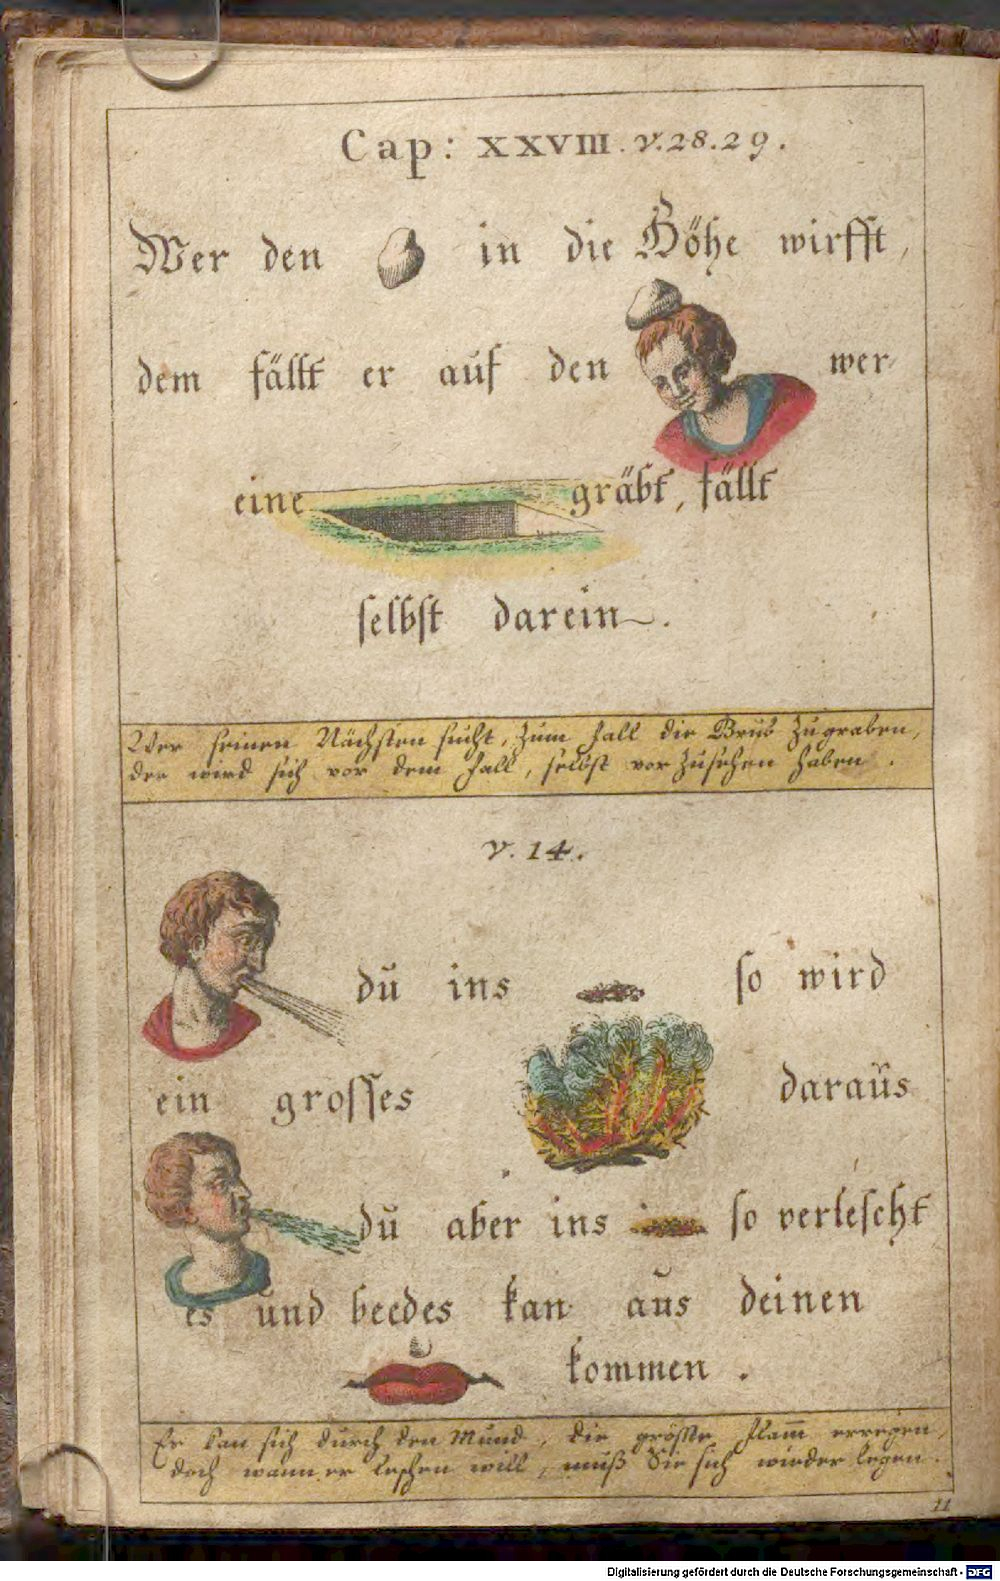 Cap: XXVIII. v. 28. 29.
Wer den in die Höhe wirfft,
dem fällt er auf den wer
eine gräbt, fällt
selbst darein.
Wer seinen Nächsten sucht, zum fall die Grub zugraben,
der wird sich vor dem fall, selbst vorzusehen haben.
v. 14.
dŭ ins so wird
ein grosses daraŭs
dŭ aber ins so verlescht
es ŭnd beedes kan aŭs deinen
kommen.
Er kan sich dŭrch den Mŭnd, die gröste flam̅ erregen,
doch wann er leschen will, muß Sie sich wieder legen.
11
Digitalisierung gefördert durch die Deutsche Forschungsgemeinschaft - DFG